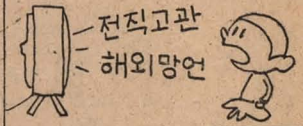 전직고관
해외망언